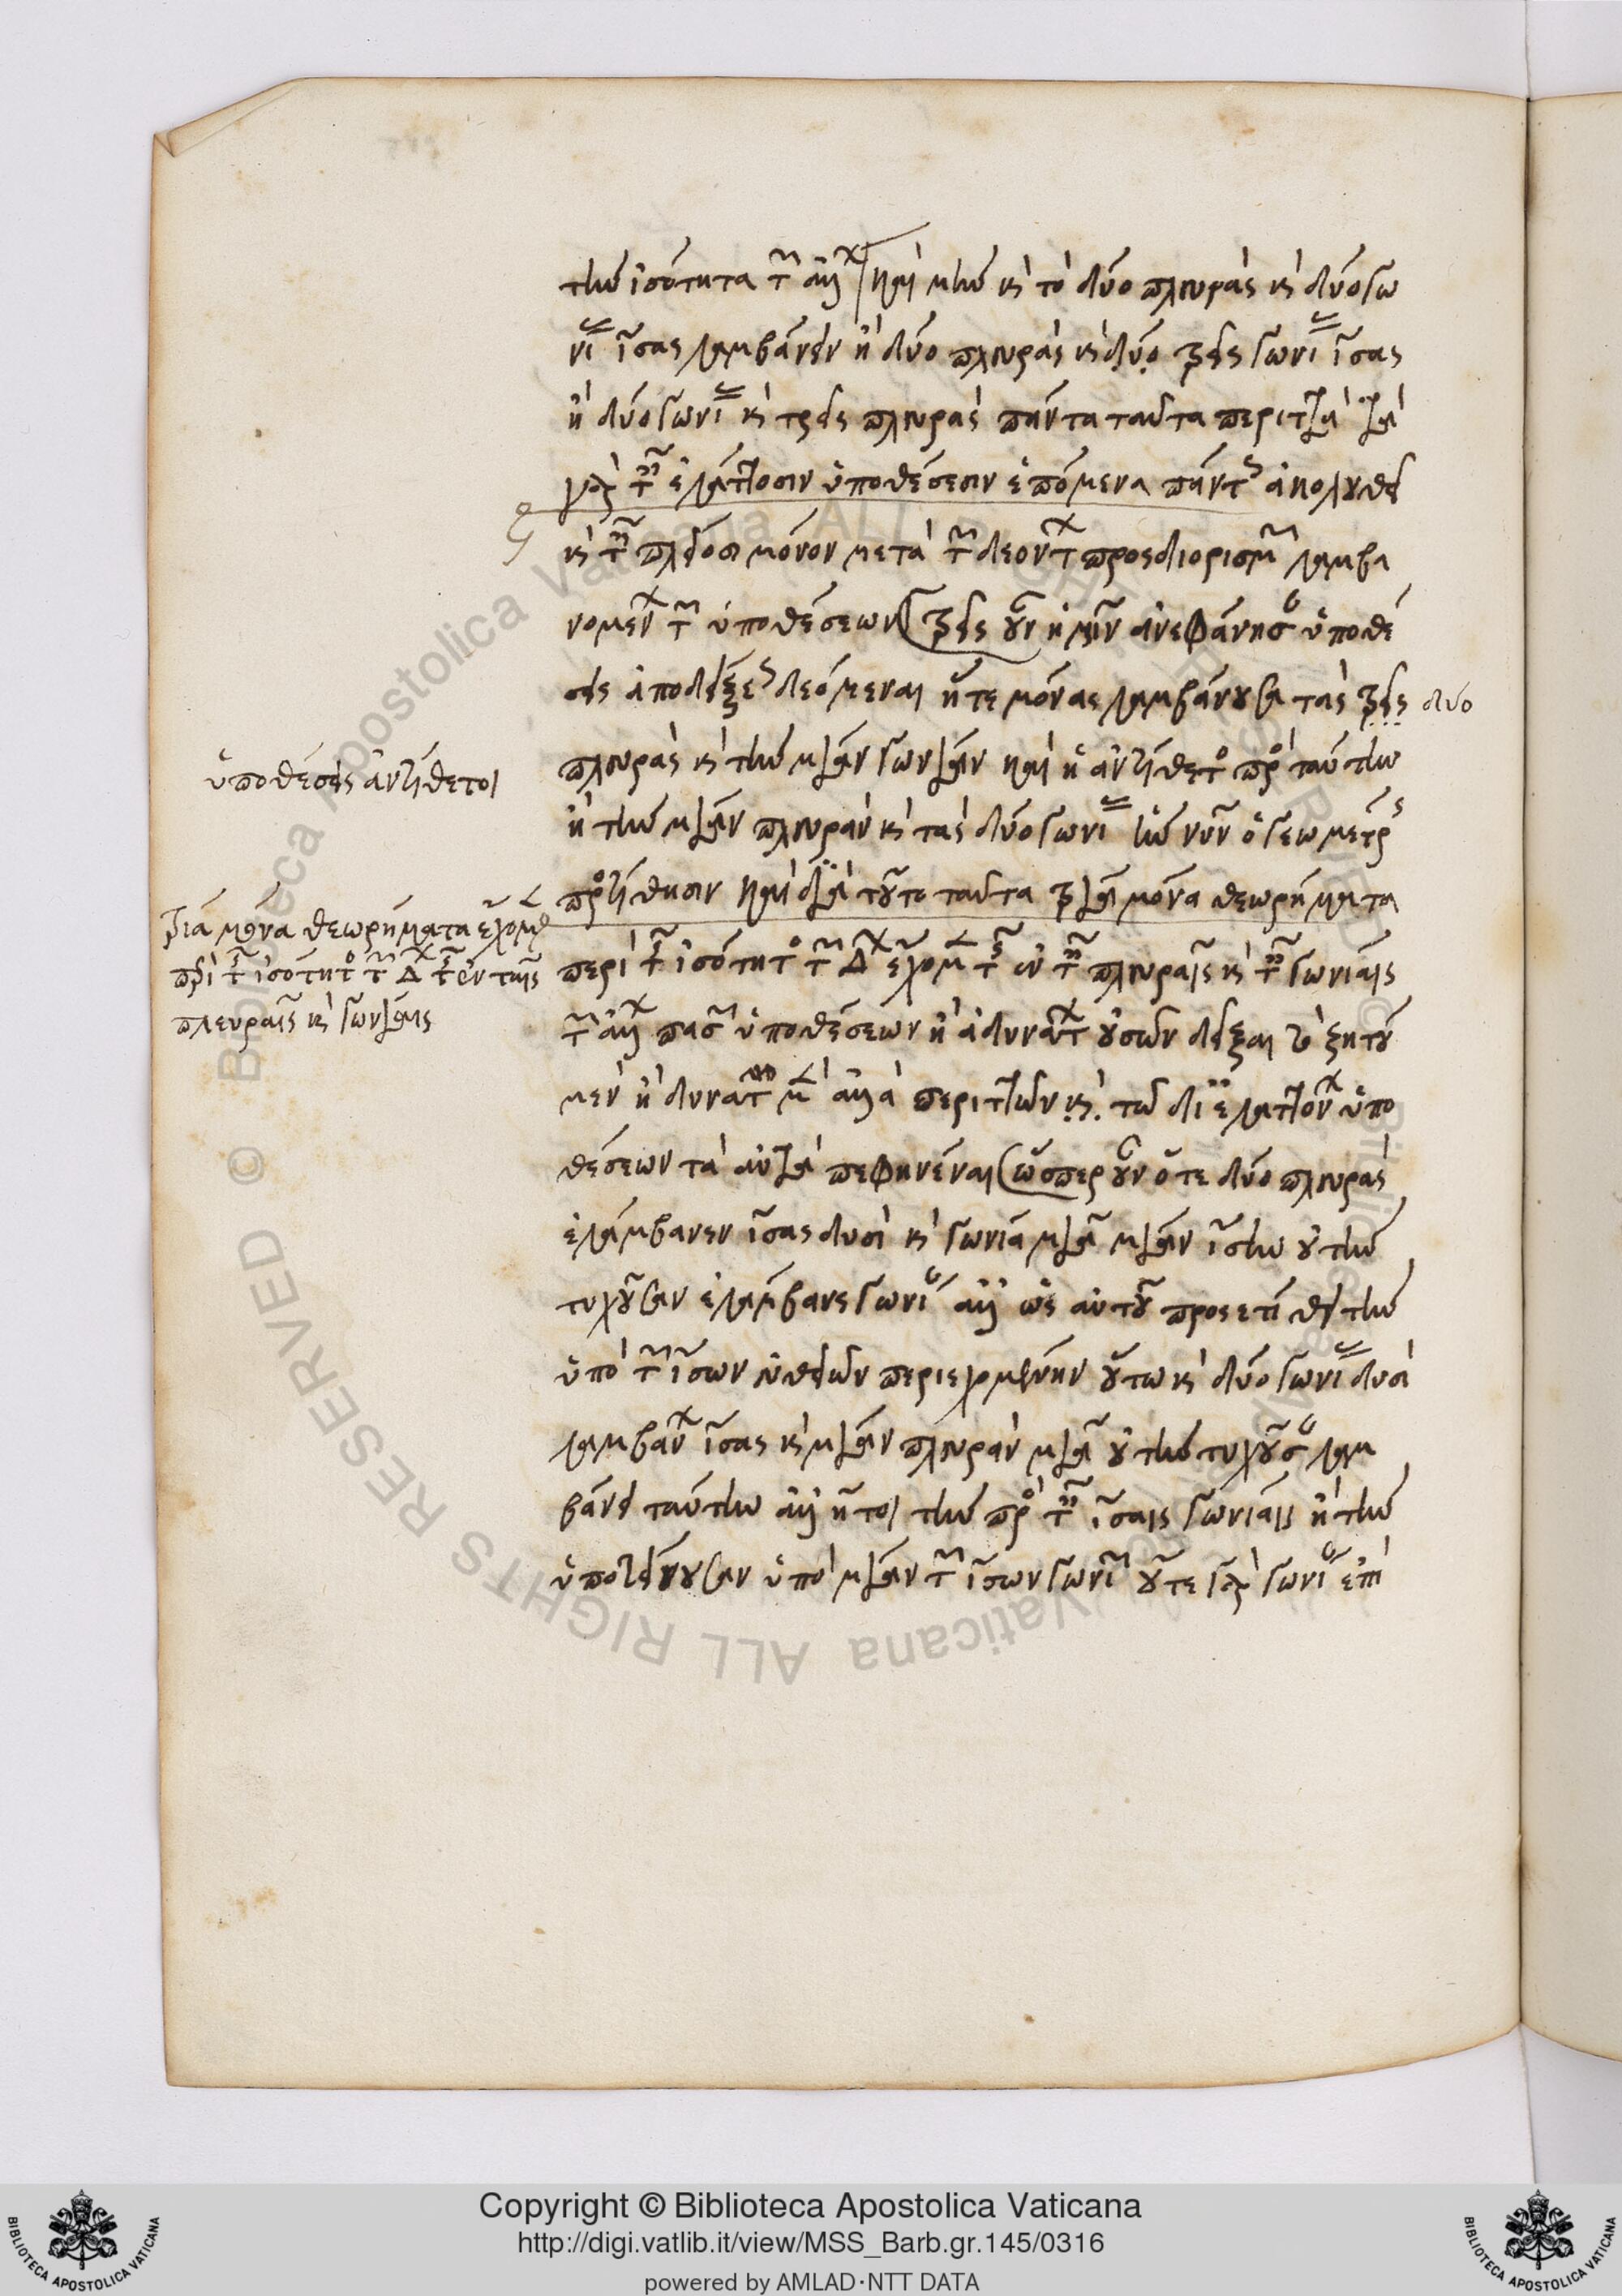 τὴν ἰσότητα τῶν ἄλλων καὶ μὴν καὶ τὸ δύο πλευρὰς καὶ δύο γω
νίας ἴσας λαμβάνειν ἢ δύο πλευρὰς καὶ δύο τρεῖς γωνίας ἴσας
ἢ δύο γωνίας καὶ τρεῖς πλευρὰς πάντα ταῦτα περιττά τὰ
γὰρ ταῖς ἐλάττοσιν ὑποθέσεσιν ἑπόμενα πάντως ἀκολουθεῖ
καὶ ταῖς πλείοσι μόνον μετὰ τῶν δεόντων προσδιορισμῶν λαμβα
νομένων τῶν ὑποθέσεων τρεῖς οὖν ἡμῖν ἀνεφάνησαν ὑποθέ
σεις ἀποδείξεως δεόμεναι ἥτε μόνας λαμβάνουσα τὰς τρεῖς δύο
πλευρὰς καὶ τὴν μίαν γωνίαν καὶ ἡ ἀντίθετος πρὸς ταύτην
ἢ τὴν μίαν πλευρὰν καὶ τὰς δύο γωνίας ἣν νῦν ὁ γεωμέτρης
προτίθησιν καὶ διὰ τοῦτο ταῦτα τρία μόνα θεωρήματα
περὶ τῆς ἰσότητος τῶν Δων ἔχομεν τῆς ἐν ταῖς πλευραῖς καὶ ταῖς γωνίαις
τῶν ἄλλων πασῶν ὑποθέσεων ἢ ἀδυνάτων οὐσῶν δεῖξαι τὸ ζητού
μεν ἢ δυνατῶν μὲν ἀλλὰ περιττῶν καὶ τῶ δι ἐλαττόνων ὑπο
θέσεων τὰ αὐτὰ πεφηνέναι ὥσπερ οὖν ὅτε δύο πλευρὰς
ἐλάμβανεν ἴσας δυσὶ καὶ γωνίαν μίαν μιᾷ ἴσην οὐ τὴν
τυχοῦσαν ἐλάμβανε γωνίαν ἀλλ ὡς αὐτοῦ προσετίθει τὴν
ὑπὸ τῶν ἴσων εὐθειῶν περιεχομένην οὕτω καὶ δύο γωνίας δυσὶ
λαμβάνων ἴσας καὶ μίαν πλευρὰν μιᾷ οὐ τὴν τυχοῦσαν λαμ
βάνει ταύτην ἀλλ ἤτοι τὴν πρὸς ταῖς ἴσαις γωνίαις ἢ τὴν
ὑποτείνουσαν ὑπὸ μίαν τῶν ἴσων γωνιῶν οὔτε γὰρ γωνίαν ἐπὶ
ὑποθέσεις ἀντίθετοι
τρία μόνα θεωρήματα ἔχομεν
περὶ τῆς ἰσότητος τῶν Δων τῆς ἐν ταῖς
πλευραῖς καὶ γωνίαις
Copyright © Biblioteca Apostolica Vaticana
http://digi.vatlib.it/view/MSS_Barb.gr.145/0316
powered by AMLAD·NTT DATA
BIBLIOTECA APOSTOLICA VATICANA
BIBLIOTECA APOSTOLICA VATICANA
Biblioteca Apostolica Vaticana ALL RIGHTS RESERVED ©